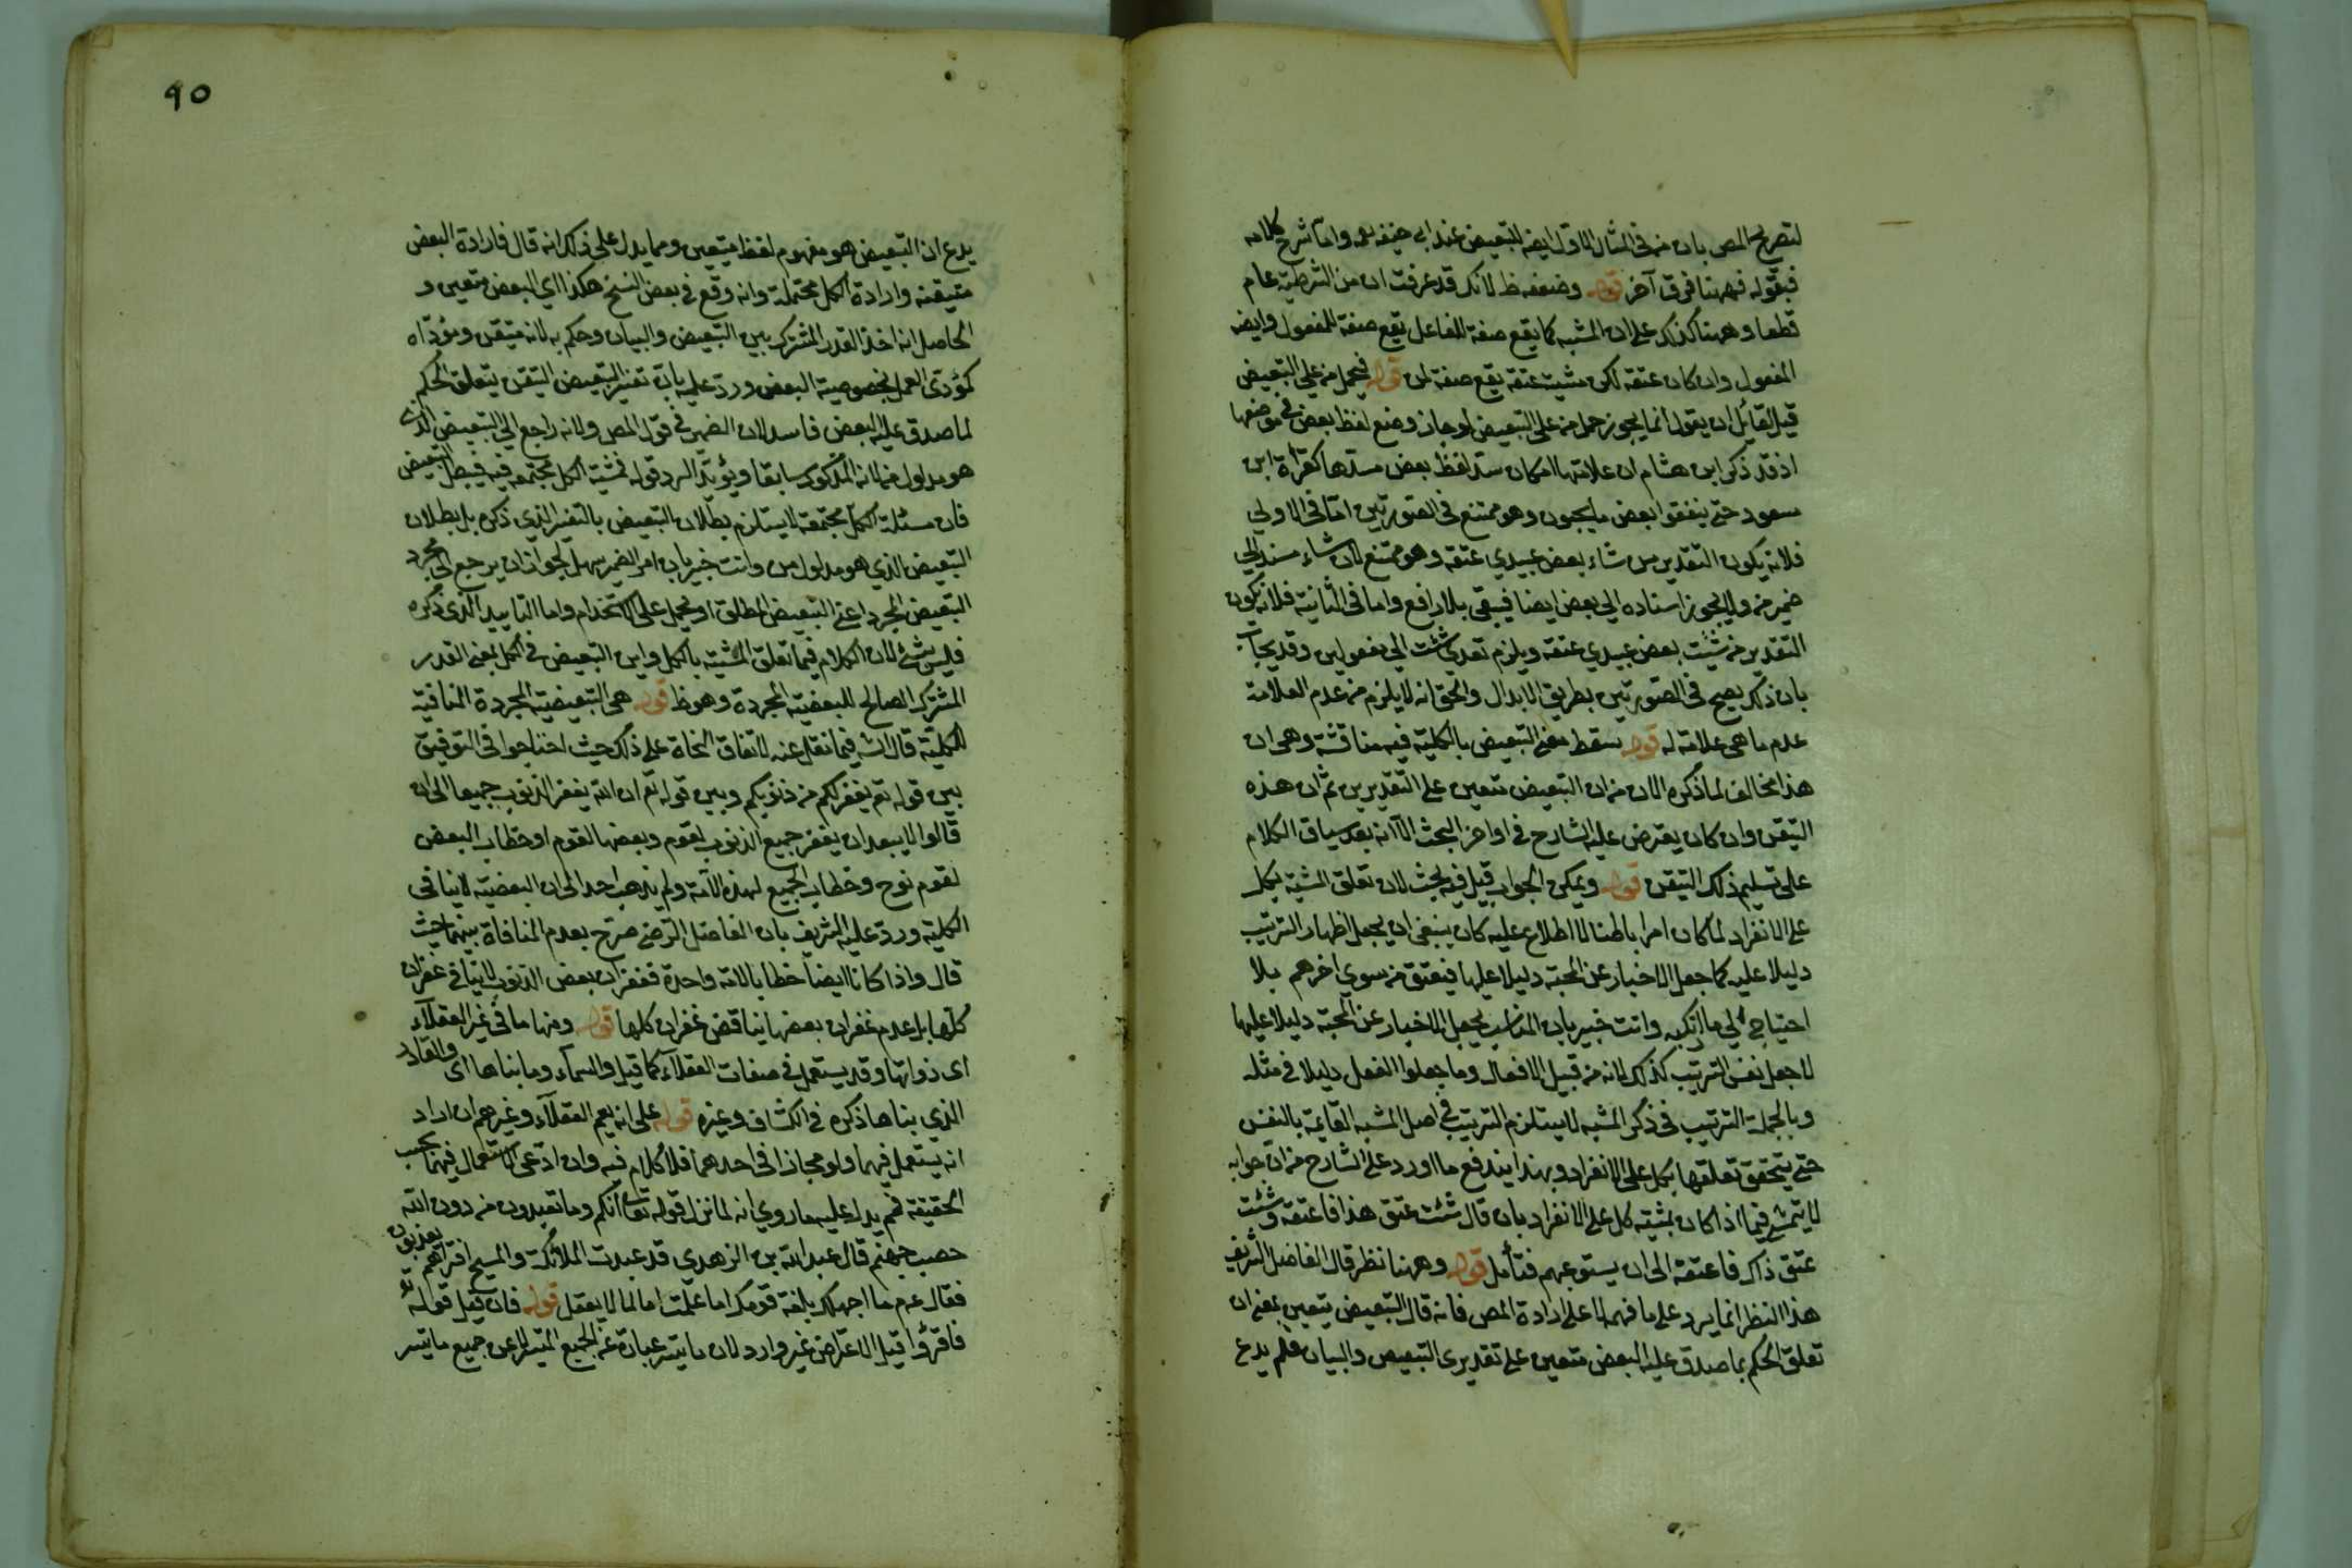 لتصريح المص بان من فى المثال الاول ايضا للتبعيض عند ابى حنيفه رحمه واما شرح كلامه
فبقوله فههنا فرق آخر قوله وضعفه ظ لانك قد عرفت ان من الشرطية عام
قطعا وههنا كذلك على ان المشيه كما يقع صفة للفاعل يقع صفة للمفعول وايضا
المفعول وان كان عتقه لكن مشيت عتقه يقع صفة لمن قوله فيحمل من على التبعيض
قيل لقائل ان يقول انما يجوز حمل من على التبعيض لو جاز وضع لفظ بعض فى موضعها
اذ قد ذكر ابن هشام ان علامتها امكان سد لفظ بعض مسدها كقراة ابن
مسعود حتى ينفقوا بعض ما يحبون وهو ممتنع فى الصورتين اما فى الاولى
فلانه يكون التقدير من شاء بعض عبيدي عتقه وهو ممتنع لان شاء مسند الى
ضمير من ولا يجوز اسناده الى بعض ايضا فيبقى بلا رافع واما فى الثانية فلانه يكون
التقدير من شئت بعض عبيدي عتقه ويلزم تعدى شئت الى مفعولين وقد يجاب
بان ذلك يصح فى الصورتين بطريق الابدال والحق انه لا يلزم من عدم العلامة
عدم ما هى علامة له قوله سقط معنى التبعيض بالكلية فيه مناقشة وهى ان
هذا مخالف لما ذكره الان من ان التبعيض متعين على التقديرين ثم ان هذه
التيقن وان كان يعترض عليه الشارح فى اواخر البحث الا انه بعد سياق الكلام
على تسليم ذلك التيقن قوله ويمكن الجواب قيل فيه بحث لان تعلق المشية بكل
على الانفراد لما كان امرا باطنا لا اطلاع عليه كان ينبغى ان يجعل اظهار الترتيب
دليلا عليه كما جعل الاخبار عن المحبة دليلا عليها فيعتق من سوى اخرهم بلا
احتياج الى ما ارتكبه وانت خبير بان المناسب لجعل الاخبار عن المحبة دليلا عليها
لا جعل نفس الترتيب كذلك لانه من قبيل الافعال وما جعلوا الفعل دليلا فى مثله
وبالجملة الترتيب فى ذكر المشيه لا يستلزم الترتيب فى اصل المشيه القايمة بالنفس
حتى يتحقق تعلقها بكل على الانفراد وبهذا يندفع ما اورد على الشارح من ان جوابه
لا يتمشى فيما اذا كان بمشيته كل على الانفراد بان قال شئت عتق هذا فاعتقه وشئت
عتق ذاك فاعتقه الى ان يستوعبهم فتأمل قوله وههنا نظر قال الفاضل الشريف
هذا النظر انما يرد على ما فهم لا على ارادة المص فانه قال التبعيض متعين بمعنى ان
تعلق الحكم بما صدق عليه البعض متعين على تقديرى التبعيض والبيان فلم يدع
٩٥
يدع ان التبعيض هو مفهوم لفظ متعين ومما يدل على ذلك انه قال فارادة البعض
متيقنه وارادة الكل محتملة وانه وقع فى بعض النسخ هكذا اي البعض متعين و
الحاصل انه اخذ القدر المشترك بين التبعيض والبيان وحكم به لانه متيقن ومؤداه
كمؤدى العمل بخصوصية البعض ورد عليه بان تفسير التبعيض التيقن بتعلق الحكم
لما صدق عليه البعض فاسد لان الضمير فى قول المص ولانه راجع الى التبعيض الذى
هو مدلول من لانه المذكور سابقا ويؤيد الرد قوله فمشية الكل مجتمعه فيه فيبطل التبعيض
فان مسئلة الكل مجتمعة لا يستلزم بطلان التبعيض بالتفسير الذي ذكره بل بطلان
التبعيض الذي هو مدلول من وانت خبير بان امر الضمير سهل لجواز ان يرجع الى مجرد
التبعيض المجرد اعنى التبعيض المطلق او يحمل على الاستخدام واما التاييد الذى ذكره
فليس بشئ لان الكلام فيما تعلق المشية بالكل واين التبعيض فى الكل بمعنى القدر
المشترك الصالح للبعضية المجردة وهو ظ قوله هى التبعيضية المجردة المنافية
للكلية قال الش فيما نقل عنه لاتفاق النحاة على ذلك حيث احتاجوا فى التوفيق
بين قوله تع يغفر لكم من ذنوبكم وبين قوله تع ان الله يغفر الذنوب جميعا الى ان
قالوا لا يبعد ان يغفر جميع الذنوب لقوم وبعضها لقوم او خطاب البعض
لقوم نوح وخطاب الجميع لهذه الامة ولم يذهب احد الى ان البعضية لا ينافى
الكلية ورد عليه الشريف بان الفاضل الرضى صرح بعدم المنافاة بينهما حيث
قال واذا كانا ايضا خطابا لامة واحدة فغفران بعض الذنوب لا ينافى غفران
كلها بل عدم غفران بعضها يناقض غفران كلها قوله ومنها ما فى غير العقلاء
اى ذواتها وقد يستعمل فى صفات العقلاء كما قيل والسماء وما بناها اى والقادر
الذي بناها ذكره فى الكشاف وغيره قوله على انه يعم العقلاء وغيرهم ان اراد
انه يستعمل فيهما ولو مجازا فى احدهما فلا كلام فيه وان ادعى الاستعمال فيهما بحسب
الحقيقة فلم يدل عليه ما روي انه لما نزل قوله تعالى انكم وما تعبدون من دون الله
حصب جهنم قال عبد الله بن الزهدي قد عبدت الملائكة والمسيح افتراهم يعذبون
فقال عم ما اجهلك بلغة قومك اما علمت ان ما لما لا يعقل قوله فان قيل قوله تع
فاقرؤا قيل الاعتراض غير وارد لان ما تيسر عبارة عن الجميع المتيسر لا عن جميع ما تيسر